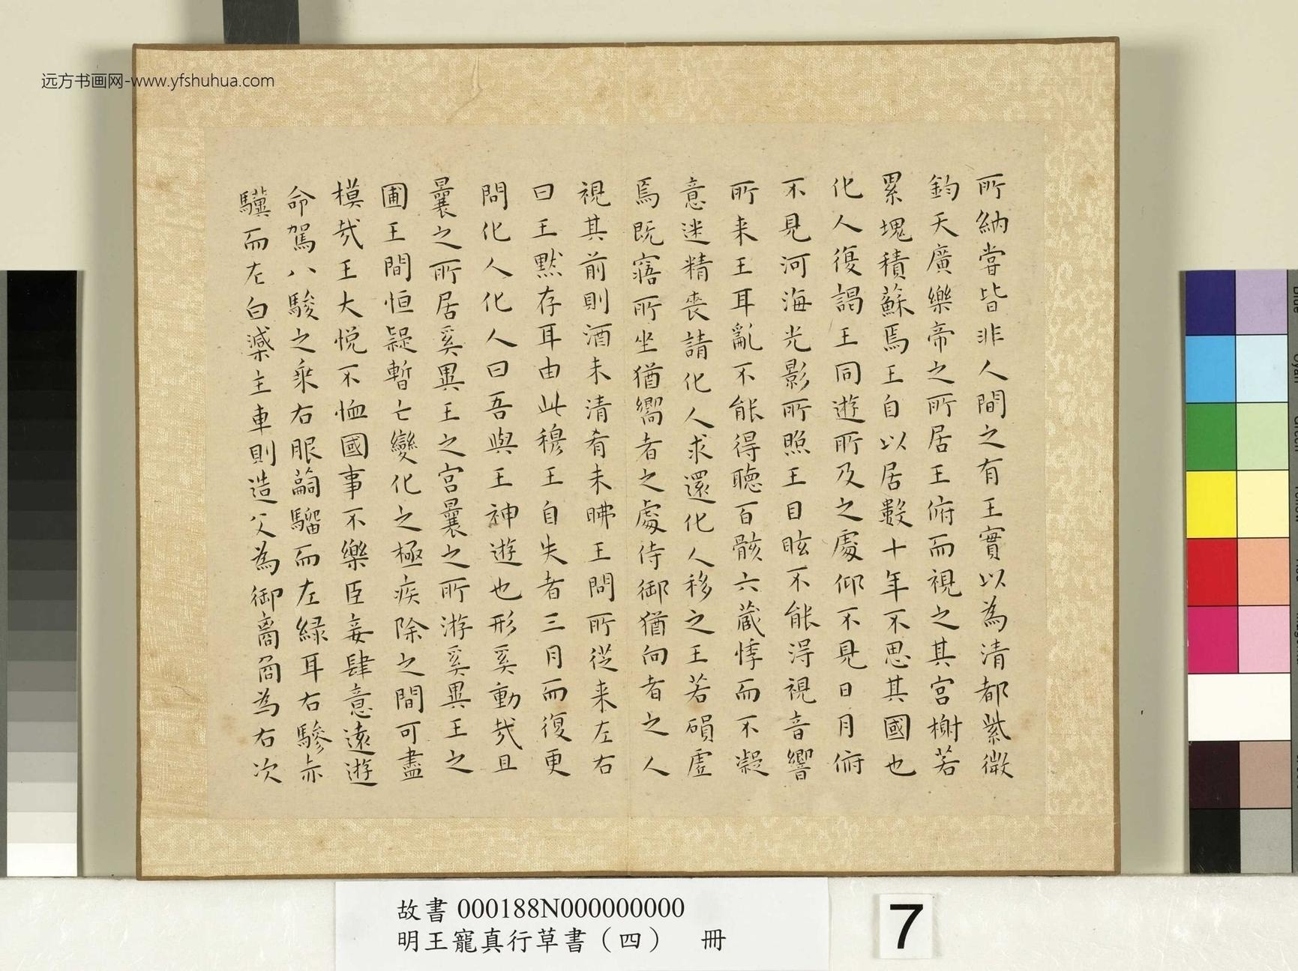 远方书画网-www.yfshuhua.com
所納嘗皆非人間之有王實以為清都紫微
鈞天廣樂帝之所居王俯而視之其宮榭若
累塊積蘇焉王自以居數十年不思其國也
化人復謁王同遊所及之處仰不見日月俯
不見河海光影所照王目眩不能得視音響
所来王耳亂不能得聽百骸六蔵悸而不凝
意迷精喪請化人求還化人移之王若磒虛
焉既寤所坐猶嚮者之處侍御猶向者之人
視其前則酒未清肴未昲王問所從来左右
曰王默存耳由此穆王自失者三月而復更
問化人化人曰吾與王神遊也形奚動㢤且
曩之所居奚異王之宮曩之所游奚異王之
圃王閒恒疑暫亡變化之極疾除之間可盡
模㢤王大悅不恤國事不樂臣妾肆意遠遊
命駕八駿之乘右服驑而左綠耳右驂赤
驥而左白主車則造父為御為右次
故書 000188N000000000
明王寵真行草書（四） 冊
7
Blue
Cyan
Green
Yellow
Red
Magenta